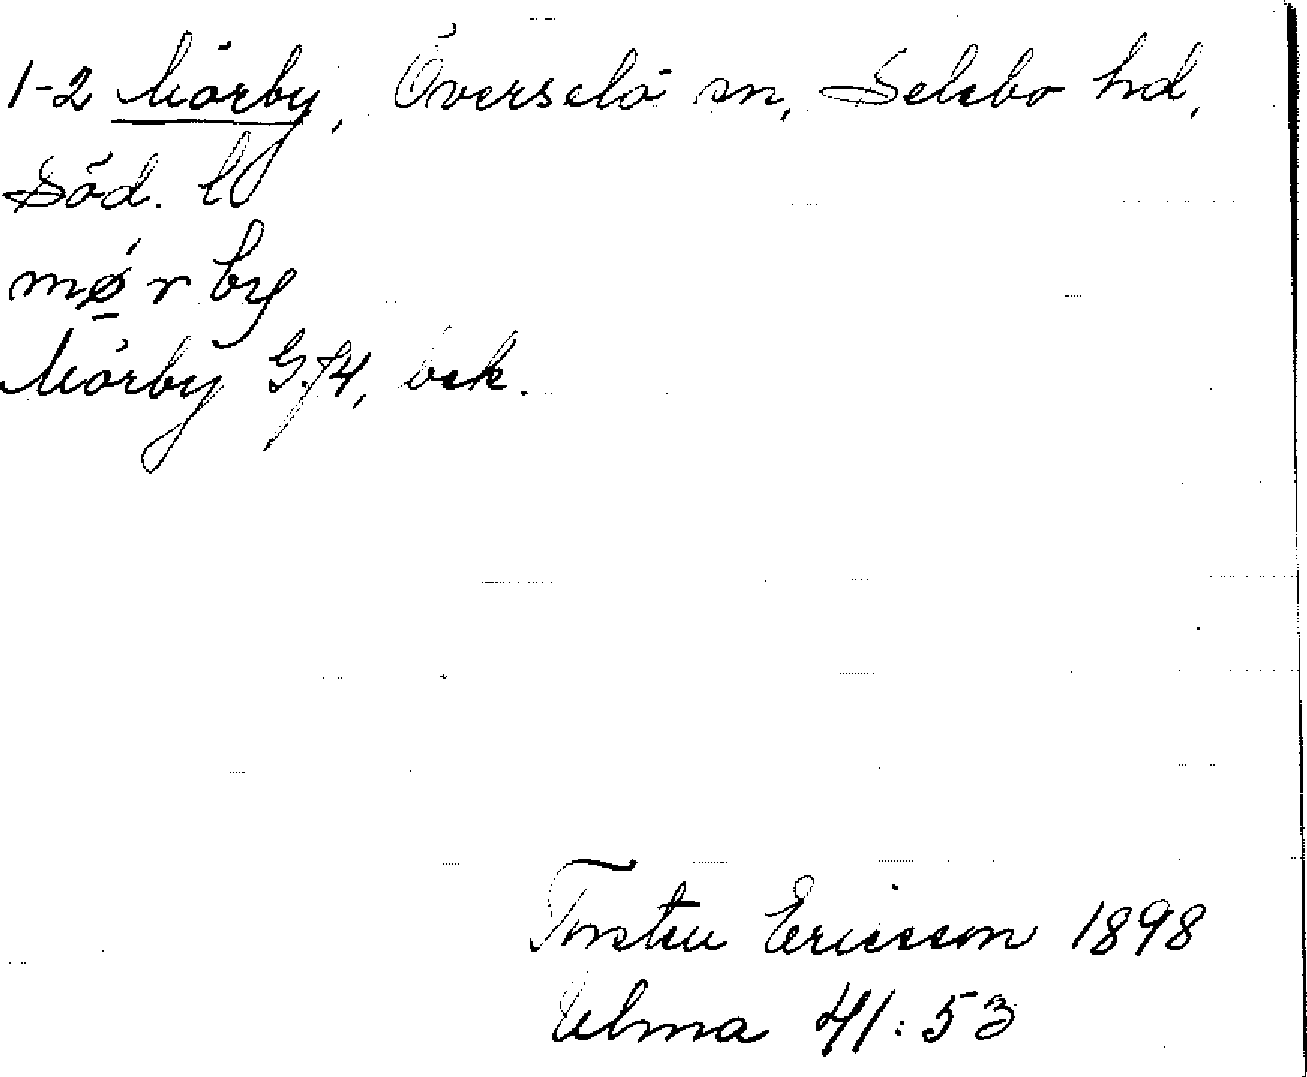 1-2 Mörby, Överselö sn, Selebo hd,
Söd. l
mǿr by
Mörby G.14, bsk.
Torsten Ericsson 1898
Ulma 41:53